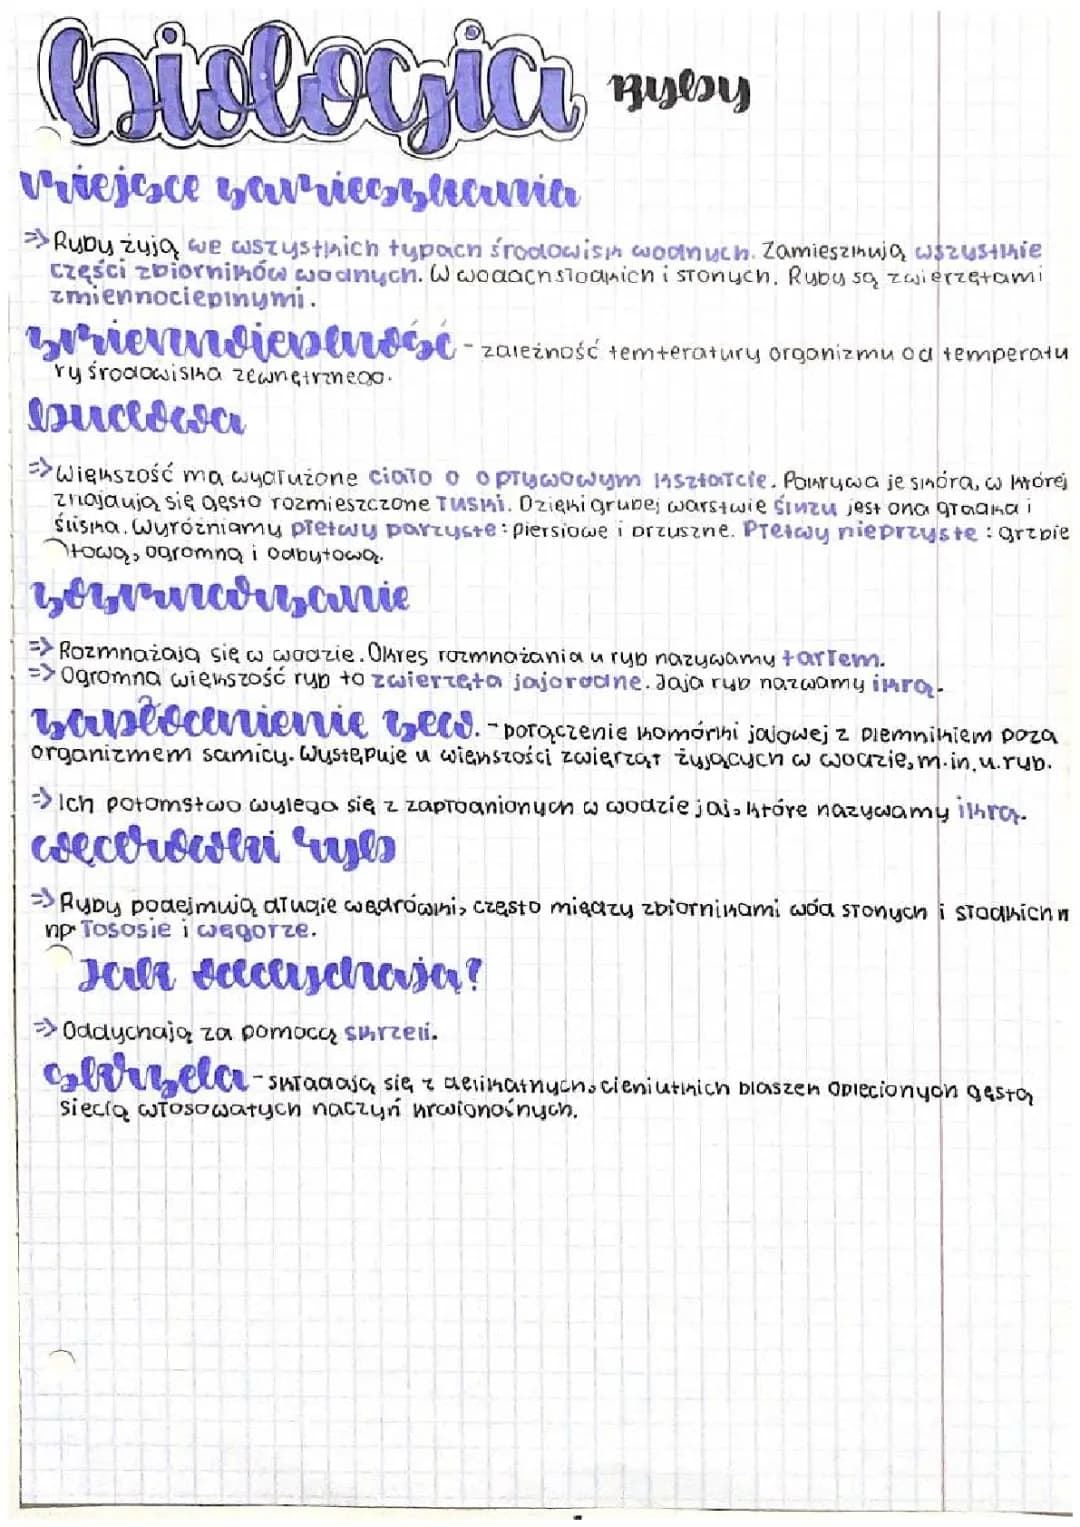 biologia Ryby
miejsce zamieszkania
=> Ryby żyją we wszystkich typach środowisk wodnych. Zamieszkują wszystkie
części zbiorników wodnych. W wodach słodkich i słonych. Ryby są zwierzętami
zmiennocieplnymi.
zmiennocieplność - zależność temteratury organizmu od temperatu
ry środowiska zewnętrznego.
budowa
=> Większość ma wydłużone ciało o opływowym kształcie. Pokrywa je skóra, w której
znajdują się gęsto rozmieszczone łuski. Dzięki grubej warstwie śluzu jest ona gładka i
śliska. Wyróżniamy płetwy parzyste: piersiowe i brzuszne. Płetwy nieprzyste: grzbie
tową, ogromną i odbytową.
rozmnażanie
=> Rozmnażają się w wodzie. Okres rozmnażania u ryb nazywamy tarłem.
=> Ogromna większość ryb to zwierzęta jajorodne. Jaja ryb nazwamy ikrą.
zapłocenienie zew. - połączenie komórki jajowej z plemnikiem poza
organizmem samicy. Występuje u większości zwierząt żyjących w wodzie, m.in. u. ryb.
=> Ich potomstwo wylęga się z zapłodnionych w wodzie jaj, które nazywamy ikrą.
wędrówki ryb
=> Ryby podejmują długie wędrówki, często między zbiornikami wód słonych i słodkich
np łososie i węgorze.
Jak oddychają?
=> Oddychają za pomocą skrzeli.
skrzela - składają się z delikatnych, cieniutkich blaszek oplecionych gęstą
siecią włosowatych naczyń krwionośnych.